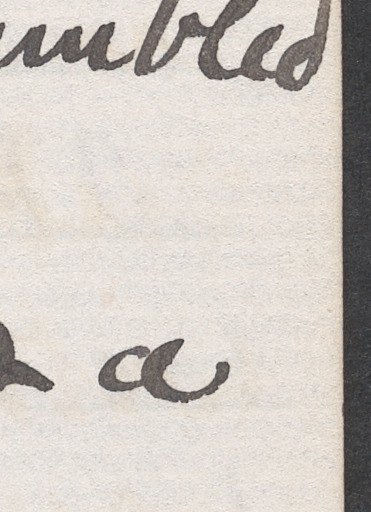 umbled
a